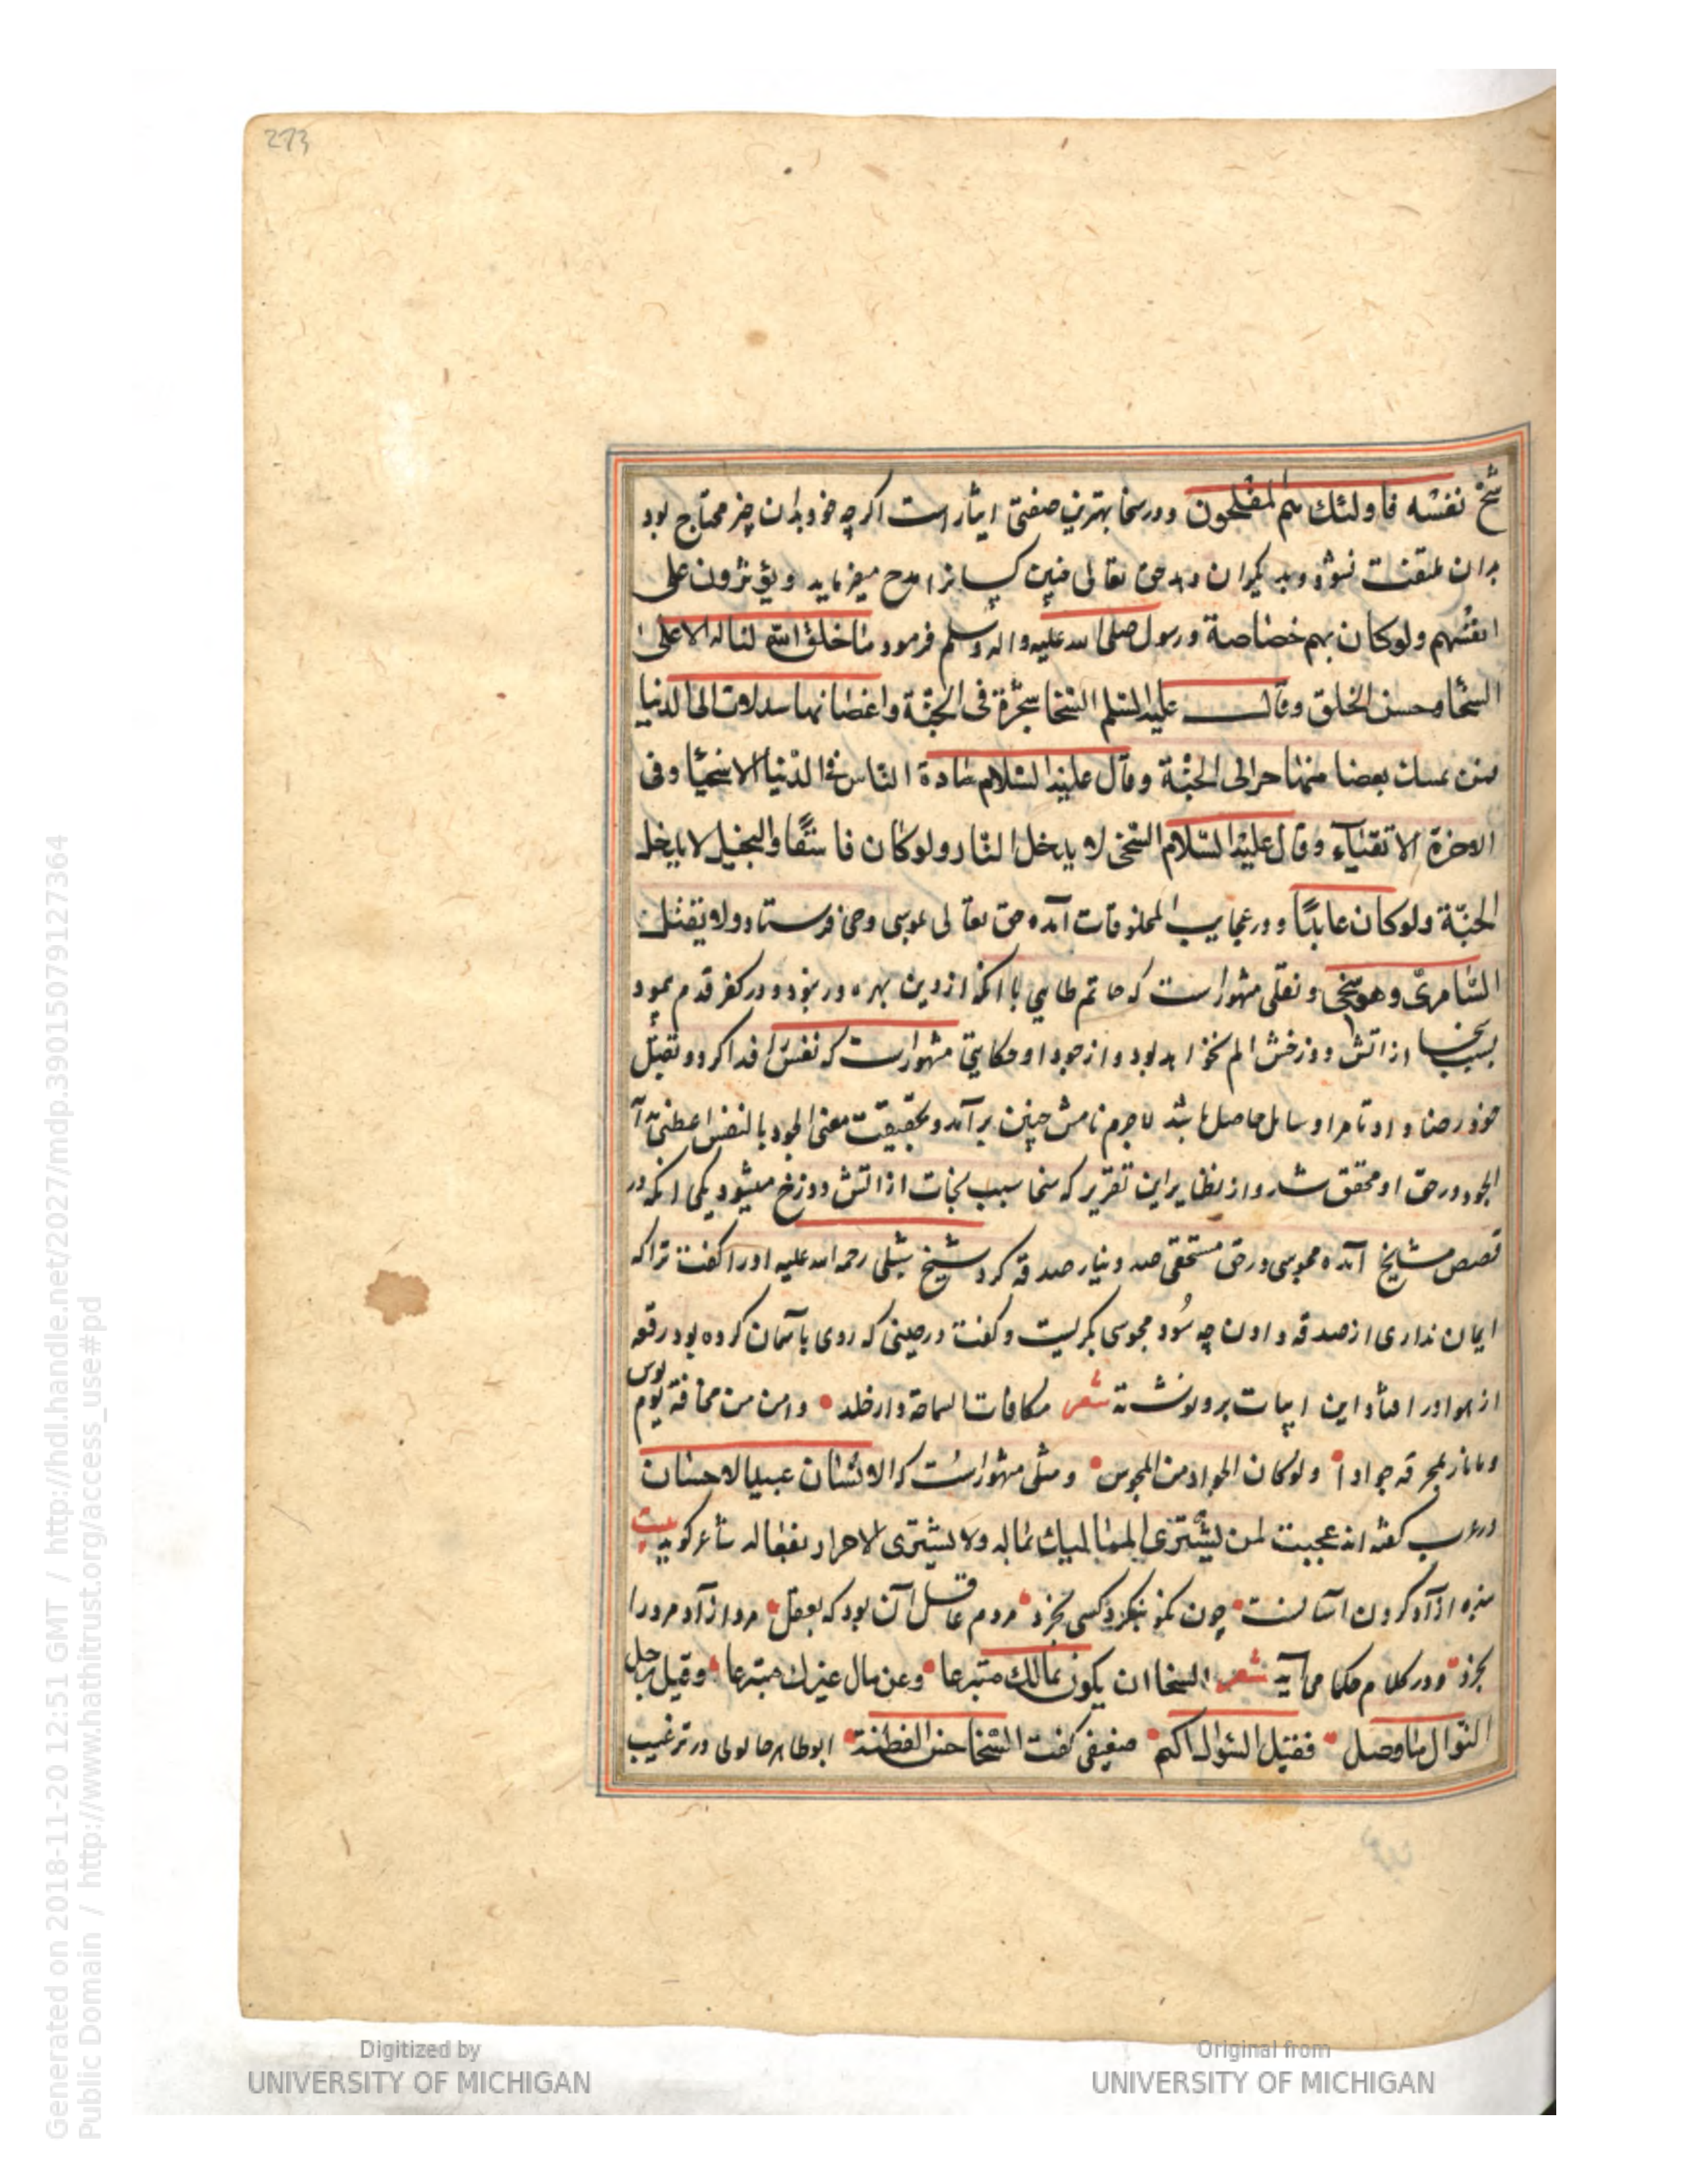 273
شح نفسه فاولئك هم المفلحون ودر سخا بهترین صفتی ایثار است اکرچه خود بدان چیز محتاج بود
بدان ملتفت نشود و بدیکران دهد حق تعالی چنین کسانرا مدح میفرماید ویؤثرون علی
انفسهم ولوکان بهم خصاصة ورسول صلی الله علیه واله وسلم فرمود ما خلق الله لناله الا علی
السخا وحسن الخلق وقال علیه السلم السخا شجرة فی الجنة واغصانها الی الدنیا
فمن تمسك بعضا منها الی الجنة وقال علیه السلام سادة الناس فی الدنیا الاسخیا وفی
الاخرة الاتقیاء وقال علیه السلام السخی لا یدخل النار ولوکان فاسقا والبخیل لا یدخل
الجنة ولوکان عابدا ودر عجایب المخلوقات آمده حق تعالی بموسی وحی فرستاد ولا تقتل
السامری وهو سخی ونقلی مشهور است که حاتم طایی با انکه از دین بهره ور نبود ودر کفر قدم نمود
بسبب سخا از اتش دوزخش الم نخواهد بود واز جود او حکایتی مشهور است که نفس فدا کرد وبقتل
خود رضا داد تا مراد سایل حاصل باشد لاجرم نامش چنین برآمد وبحقیقت معنی الجود بالنفس
الجود در حق او محقق شد واز نظایر این تقریر که سخا سبب نجات از اتش دوزخ میشود یکی انکه در
قصص مشایخ آمده مجوسی در حق مستحقی صد دینار صدقه کرد شیخ شبلی رحمه الله علیه اورا کفت ترا که
ایمان نداری از صدقه دادن چه سود مجوسی بکریست وکفت درحینی که روی باسمان کرده بود رقعه
از هوا در افتاد این ابیات برو نوشته شعر مکافات السماحة دار خلد وامن من مخافة یوم بوس
وما نار بمحرقة جوادا ولوکان الجواد من المجوس ومثلی مشهور است که الانسان عبید الاحسان
در عرب کفته اند عجبت لمن یشتری الممالیك بماله ولا یشتری الاحرار بفعاله شاعر کوید بیت
بنده ازاد کردن اسانست چون نکو بنکرد کسی بخرد مردم عاقل آن بود که بعقل مرد ازاد مرد را
بخرد ودر کلام حکما می آید شعر السخا ان یکون بمالك متبرعا وعن مال غیرك متبرعا وقیل لرجل
النوال ما وصل فقیل السوال ضعیفی کفت السخا حسن الفطنة ابوطاهر خاتونی در ترغیب
Generated on 2018-11-20 12:51 GMT / http://hdl.handle.net/2027/mdp.39015079127364
Public Domain / http://www.hathitrust.org/access_use#pd
Digitized by
UNIVERSITY OF MICHIGAN
Original from
UNIVERSITY OF MICHIGAN